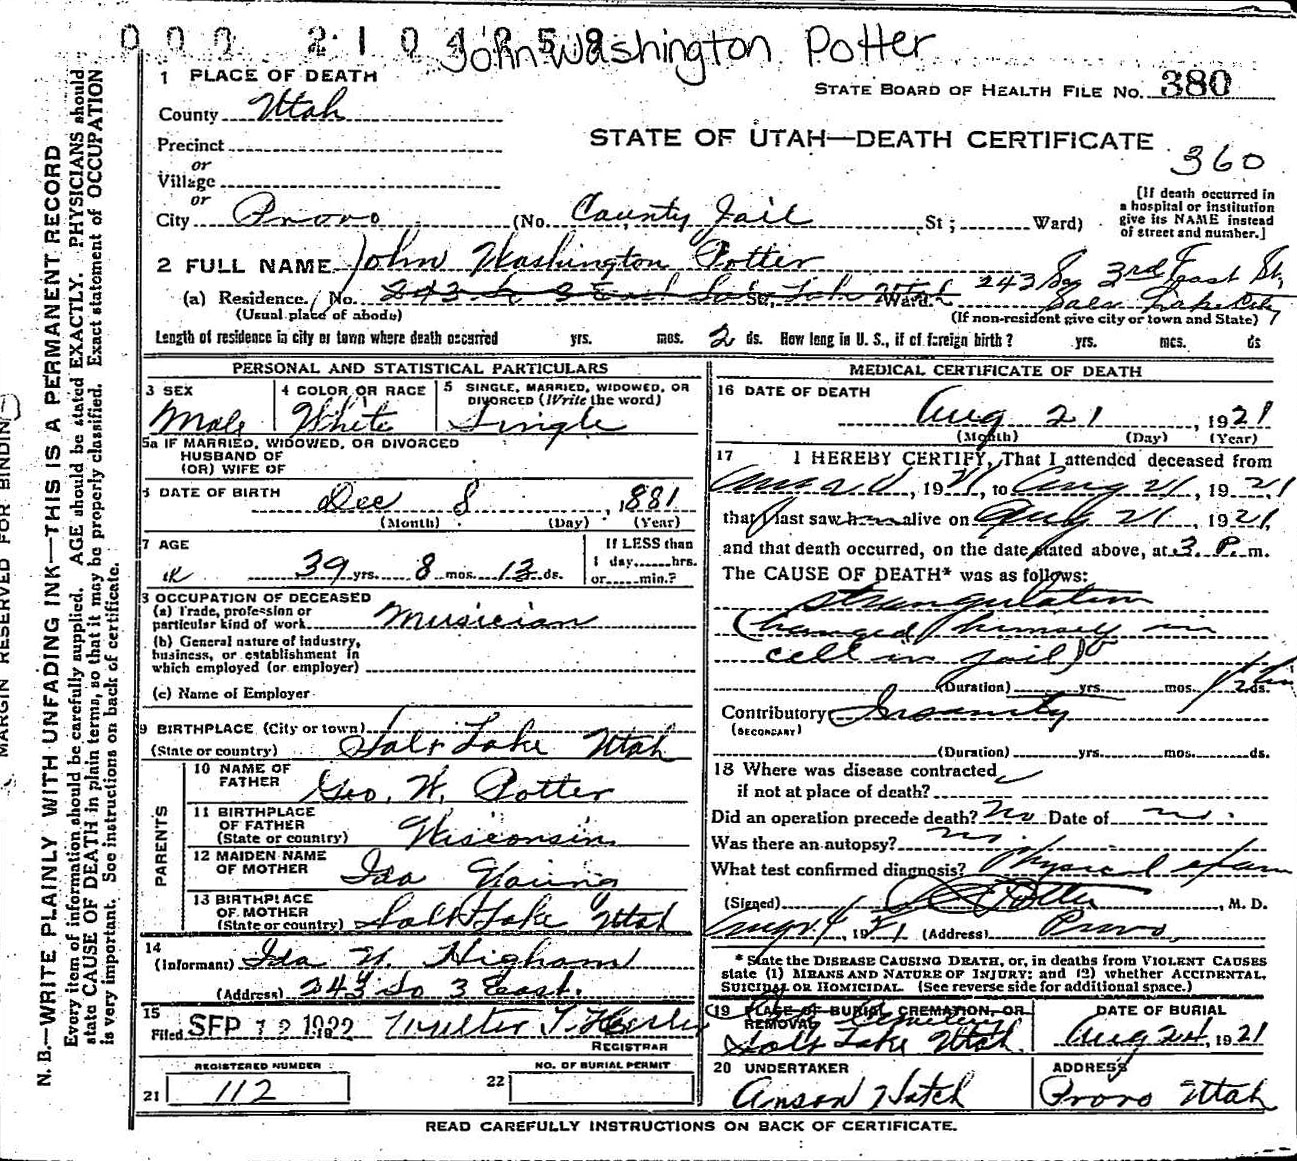 000 2104058 John Washington Potter
1 PLACE OF DEATH
STATE BOARD OF HEALTH FILE No. 380
County Utah
STATE OF UTAH—DEATH CERTIFICATE
360
Precinct
or
Village
or
City Provo (No. County Jail St; Ward)
[If death occurred in
a hospital or institution
give its NAME instead
of street and number.]
2 FULL NAME John Washington Potter
(a) Residence. No. St., Ward. 243 So 3rd East St,
Salt Lake City
(Usual place of abode) (If non-resident give city or town and State)
Length of residence in city or town where death occurred yrs. mos. 2 ds. How long in U. S., if of foreign birth? yrs. mos. ds
PERSONAL AND STATISTICAL PARTICULARS
3 SEX Male
4 COLOR OR RACE White
5 SINGLE, MARRIED, WIDOWED, OR
DIVORCED (Write the word)
Single
5a IF MARRIED, WIDOWED, OR DIVORCED
HUSBAND OF
(OR) WIFE OF
6 DATE OF BIRTH Dec 8, 1881
(Month) (Day) (Year)
7 AGE 39 yrs. 8 mos. 13 ds.
If LESS than
1 day......hrs.
or......min.?
8 OCCUPATION OF DECEASED
(a) Trade, profession or
particular kind of work Musician
(b) General nature of industry,
business, or establishment in
which employed (or employer)
(c) Name of Employer
9 BIRTHPLACE (City or town)
(State or country) Salt Lake Utah
PARENTS
10 NAME OF
FATHER Geo. W. Potter
11 BIRTHPLACE
OF FATHER
(State or country) Wisconsin
12 MAIDEN NAME
OF MOTHER Ida Young
13 BIRTHPLACE
OF MOTHER
(State or country) Salt Lake Utah
14
(Informant) Ida Y. Higham
(Address) 243 So 3 East.
15
Filed SEP 12 1922
REGISTRAR
REGISTERED NUMBER
21 112
NO. OF BURIAL PERMIT
22
MEDICAL CERTIFICATE OF DEATH
16 DATE OF DEATH
Aug 21, 1921
(Month) (Day) (Year)
17 I HEREBY CERTIFY, That I attended deceased from
Aug 20, 1921, to Aug 21, 1921
that I last saw him alive on Aug 21, 1921
and that death occurred, on the date stated above, at 3 P. m.
The CAUSE OF DEATH* was as follows:
Strangulation
(hanged himself in
cell in jail)
(Duration) yrs. mos. ds.
Contributory Insanity
(SECONDARY)
(Duration) yrs. mos. ds.
18 Where was disease contracted
if not at place of death?
Did an operation precede death? No Date of
Was there an autopsy? no
What test confirmed diagnosis? Physical exam
(Signed) Potter, M. D.
1921 (Address) Provo
* State the DISEASE CAUSING DEATH, or, in deaths from VIOLENT CAUSES
state (1) MEANS AND NATURE OF INJURY; and (2) whether ACCIDENTAL,
SUICIDAL OR HOMICIDAL. (See reverse side for additional space.)
19 PLACE OF BURIAL, CREMATION, OR
REMOVAL
Salt Lake Utah.
DATE OF BURIAL
Aug 24, 1921
20 UNDERTAKER
Anson Hatch
ADDRESS
Provo Utah
READ CAREFULLY INSTRUCTIONS ON BACK OF CERTIFICATE.
MARGIN RESERVED FOR BINDING
N. B.—WRITE PLAINLY WITH UNFADING INK—THIS IS A PERMANENT RECORD
Every item of information should be carefully supplied. AGE should be stated EXACTLY. PHYSICIANS should
state CAUSE OF DEATH in plain terms, so that it may be properly classified. Exact statement of OCCUPATION
is very important. See instructions on back of certificate.